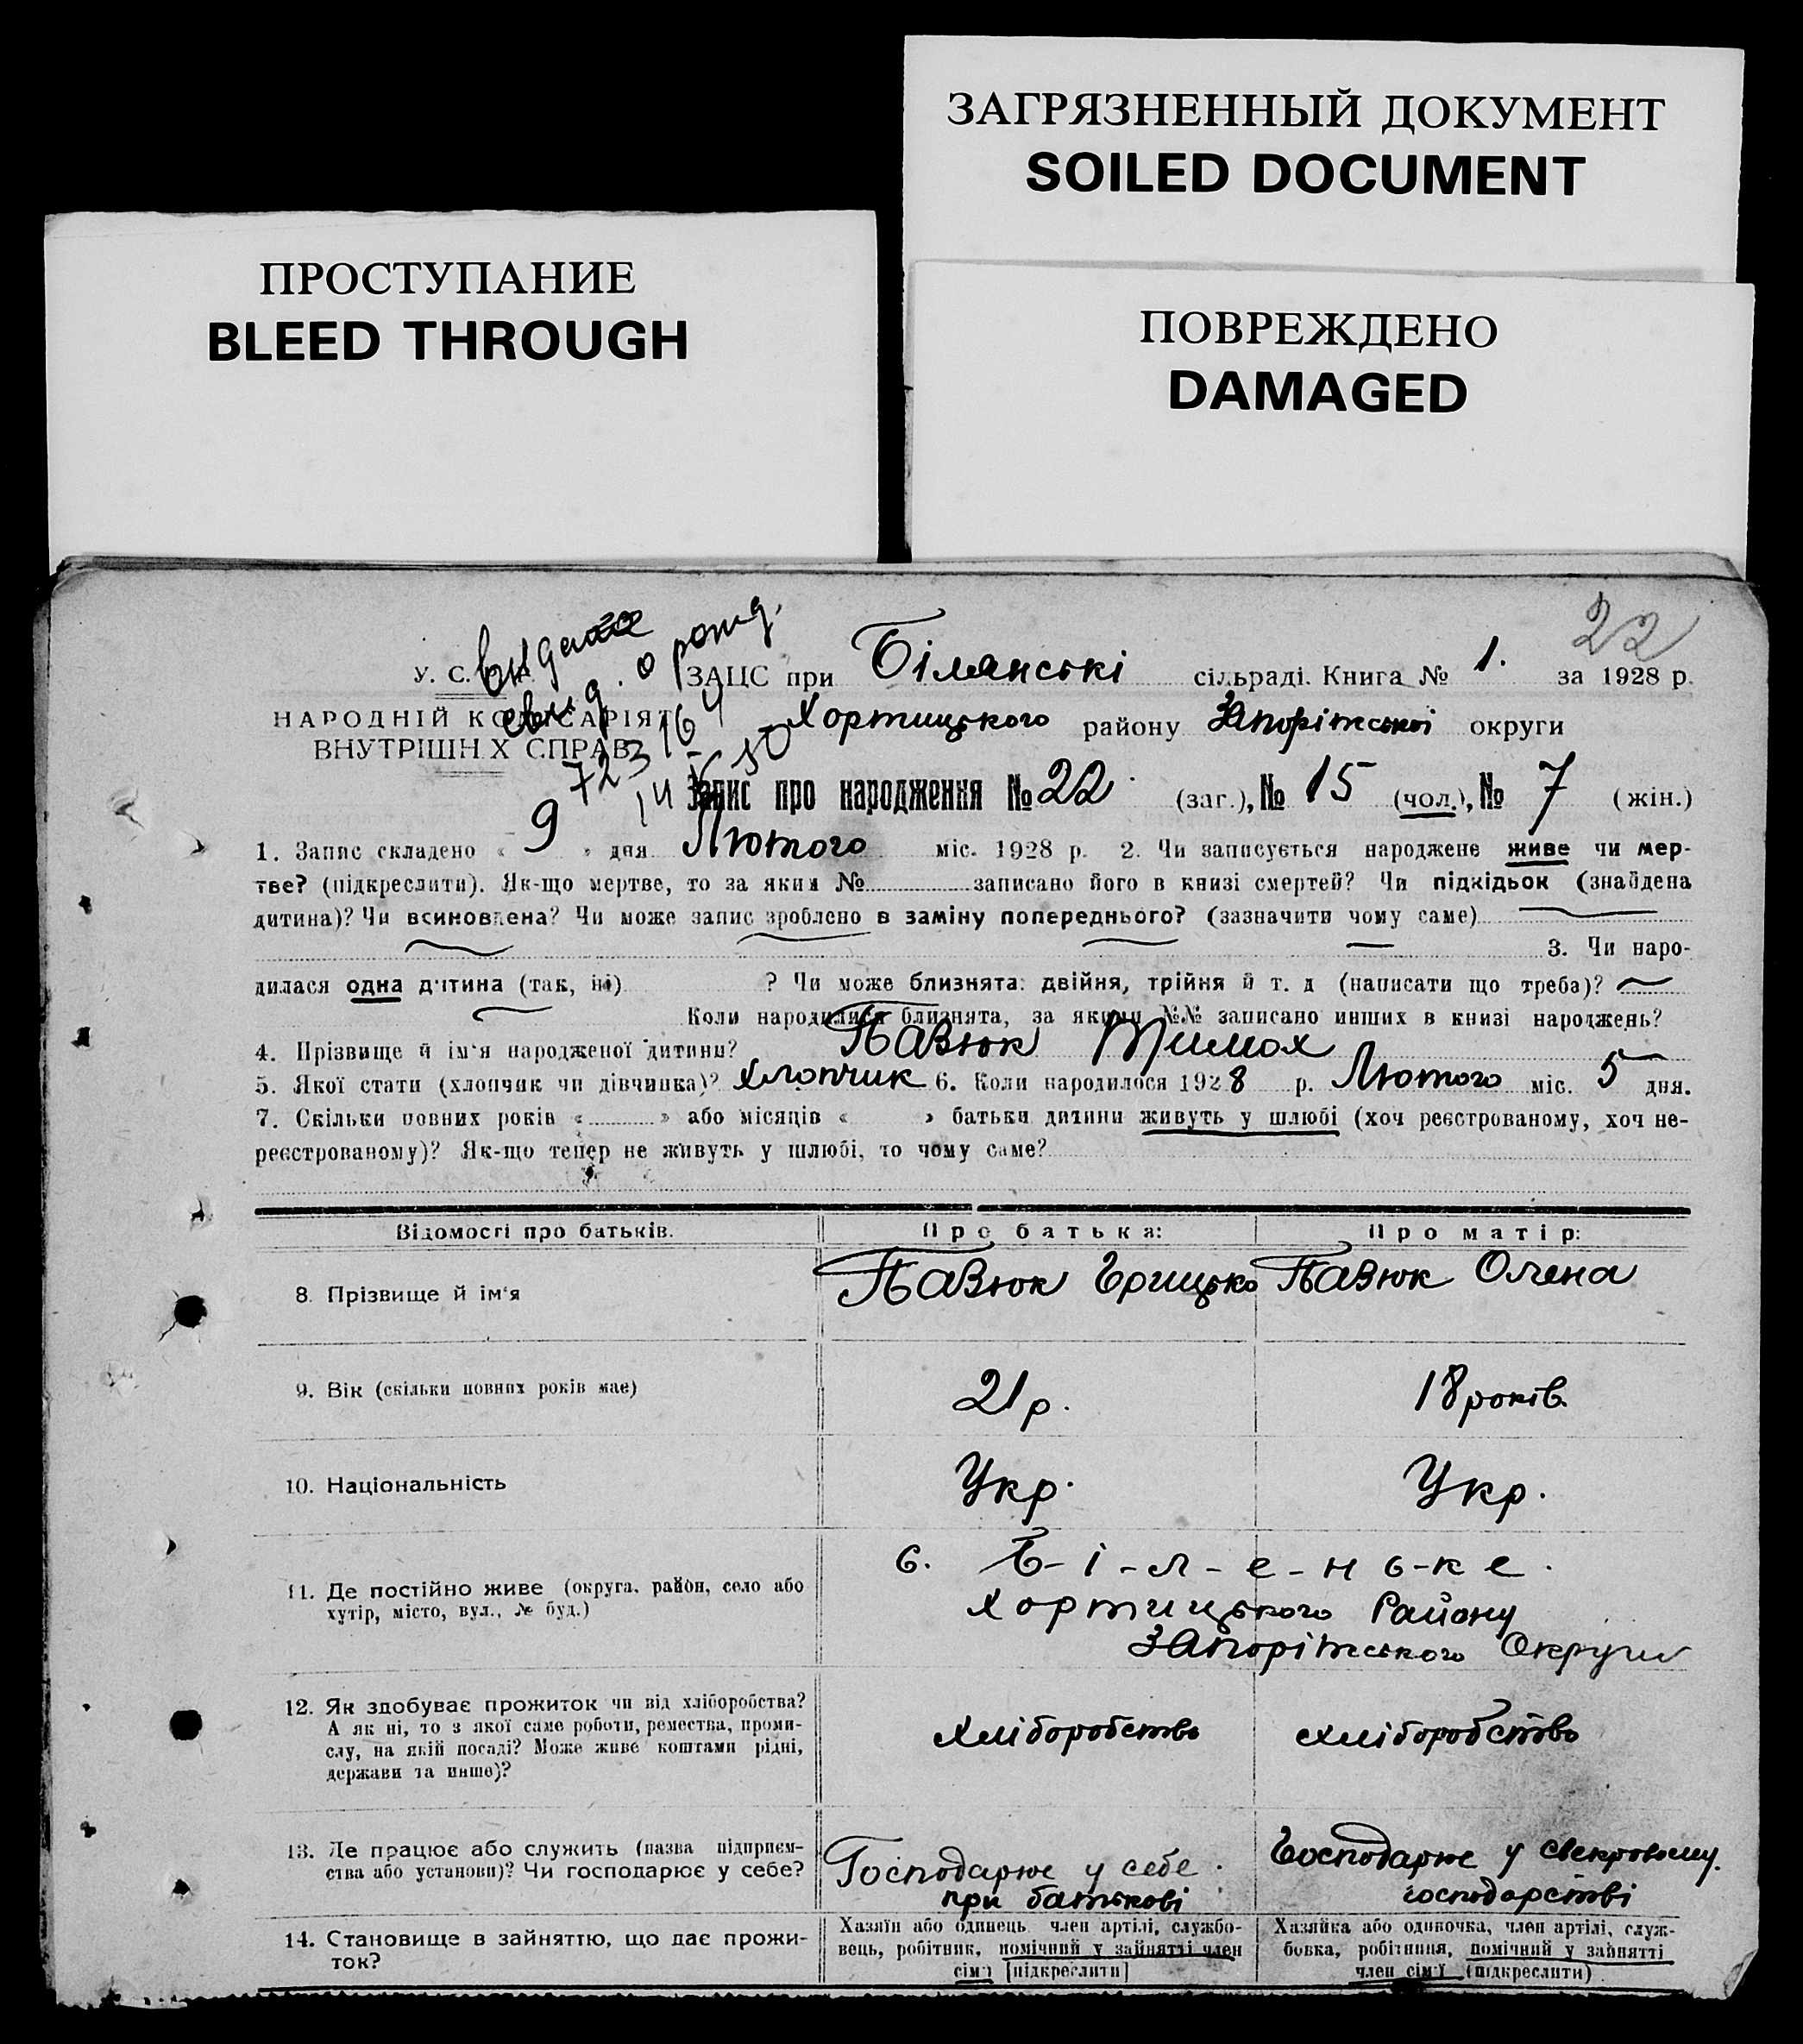 ЗАГРЯЗНЕННЫЙ ДОКУМЕНТ
SOILED DOCUMENT
ПРОСТУПАНИЕ
BLEED THROUGH
ПОВРЕЖДЕНО
DAMAGED
22
о рожд.
У. С. ЗАЦС при Білянські сільраді. Книга № 1. за 1928 р.
НАРОДНІЙ КОМІСАРІЯТ Хортицького району Запоріжської округи
ВНУТРІШНІХ СПРАВ
Запис про народження № 22 (заг.), № 15 (чол.), № 7 (жін.)
1. Запис складено « 9 » дня Лютого міс. 1928 р. 2. Чи записується народжене живе чи мер-
тве? (підкреслити). Як-що мертве, то за яким № записано його в книзі смертей? Чи підкідьок (знайдена
дитина)? Чи всиновлена? Чи може запис зроблено в заміну попереднього? (зазначити чому саме)
3. Чи наро-
дилася одна дитина (так, ні) ? Чи може близнята: двійня, трійня й т. д (написати що треба)?
Коли народилися близнята, за якими №№ записано инших в книзі народжень?
4. Прізвище й ім'я народженої дитини? Павюк Тимох
5. Якої стати (хлопчик чи дівчинка)? Хлопчик 6. Коли народилося 1928 р. Лютого міс. 5 дня.
7. Скільки повних років « » або місяців « » батьки дитини живуть у шлюбі (хоч реєстрованому, хоч не-
реєстрованому)? Як-що тепер не живуть у шлюбі, то чому саме?
Відомості про батьків. Про батька: Про матір:
8. Прізвище й ім'я Павюк Грицько Павюк Олена
9. Вік (скільки повних років має) 21 р. 18 років.
10. Національність Укр. Укр.
с. Б-і-л-е-н-ь-к-е.
11. Де постійно живе (округа, район, село або
хутір, місто, вул., № буд.) Хортицького Району
Запоріжського Округи
12. Як здобуває прожиток чи від хліборобства?
А як ні, то з якої саме роботи, ремества, проми-
слу, на якій посаді? Може живе коштами рідні,
держави та инше)?
Хліборобство хліборобство
13. Де працює або служить (назва підприєм-
ства або установи)? Чи господарює у себе?
Господарює у себе
при батькові
Господарює у свекровому
господарстві
14. Становище в зайняттю, що дає прожи-
ток?
Хазяїн або одинець член артілі, службо-
вець, робітник, помічний у зайнятті член
сім'ї [підкреслити]
Хазяйка або одиночка, член артілі, служ-
бовка, робітниця, помічний у зайнятті
член сім'ї (підкреслити)